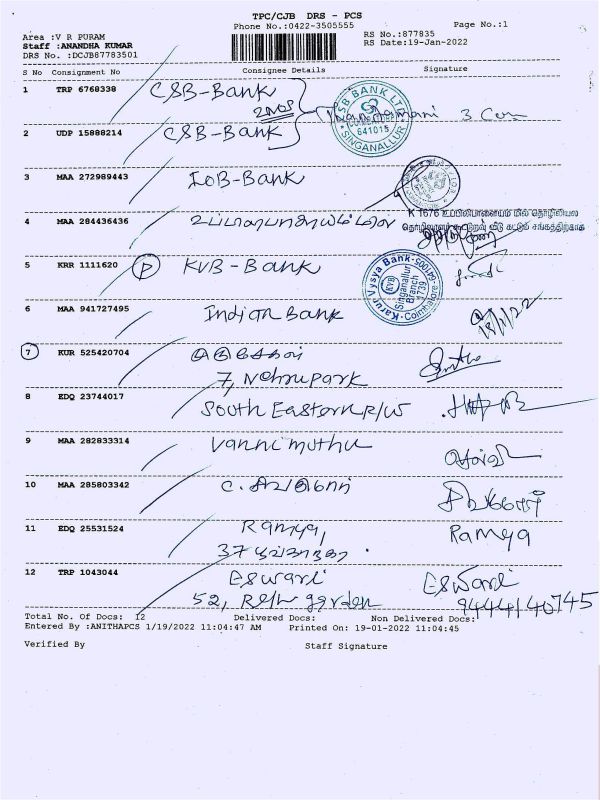 TPC/CJB DRS - PCS
Phone No.:0422-3505555
Page No.:1
Area :V R PURAM
RS No.:877835
Staff :ANANDHA KUMAR
RS Date:19-Jan-2022
DRS No. :DCJB87783501
S No Consignment No Consignee Details Signature
1 TRP 6768338 CSB-Bank
2 Nos
CSB BANK LTD
641015
SINGANALLUR
3 Con
2 UDP 15888214 CSB-Bank
3 MAA 272989443 IOB-Bank
4 MAA 284436436
K 1676 உப்பிலிபாளையம் மில் தொழிலாளர்
5 KRR 1111620 P KVB-Bank
Karur Vysya Bank
KVB
Singanallur
Branch
1739
Coimbatore
6 MAA 941727495 Indian Bank
18/1/22
7 KUR 525420704
7, Nehru park
8 EDQ 23744017 South Eastern R/W
9 MAA 282833314 Vanni muthu
10 MAA 285803342
11 EDQ 25531524 Ramya, Ramya
37
12 TRP 1043044 Eswari Eswari
52, garden 9444140745
Total No. Of Docs: 12 Delivered Docs: Non Delivered Docs:
Entered By :ANITHAPCS 1/19/2022 11:04:47 AM Printed On: 19-01-2022 11:04:45
Verified By Staff Signature